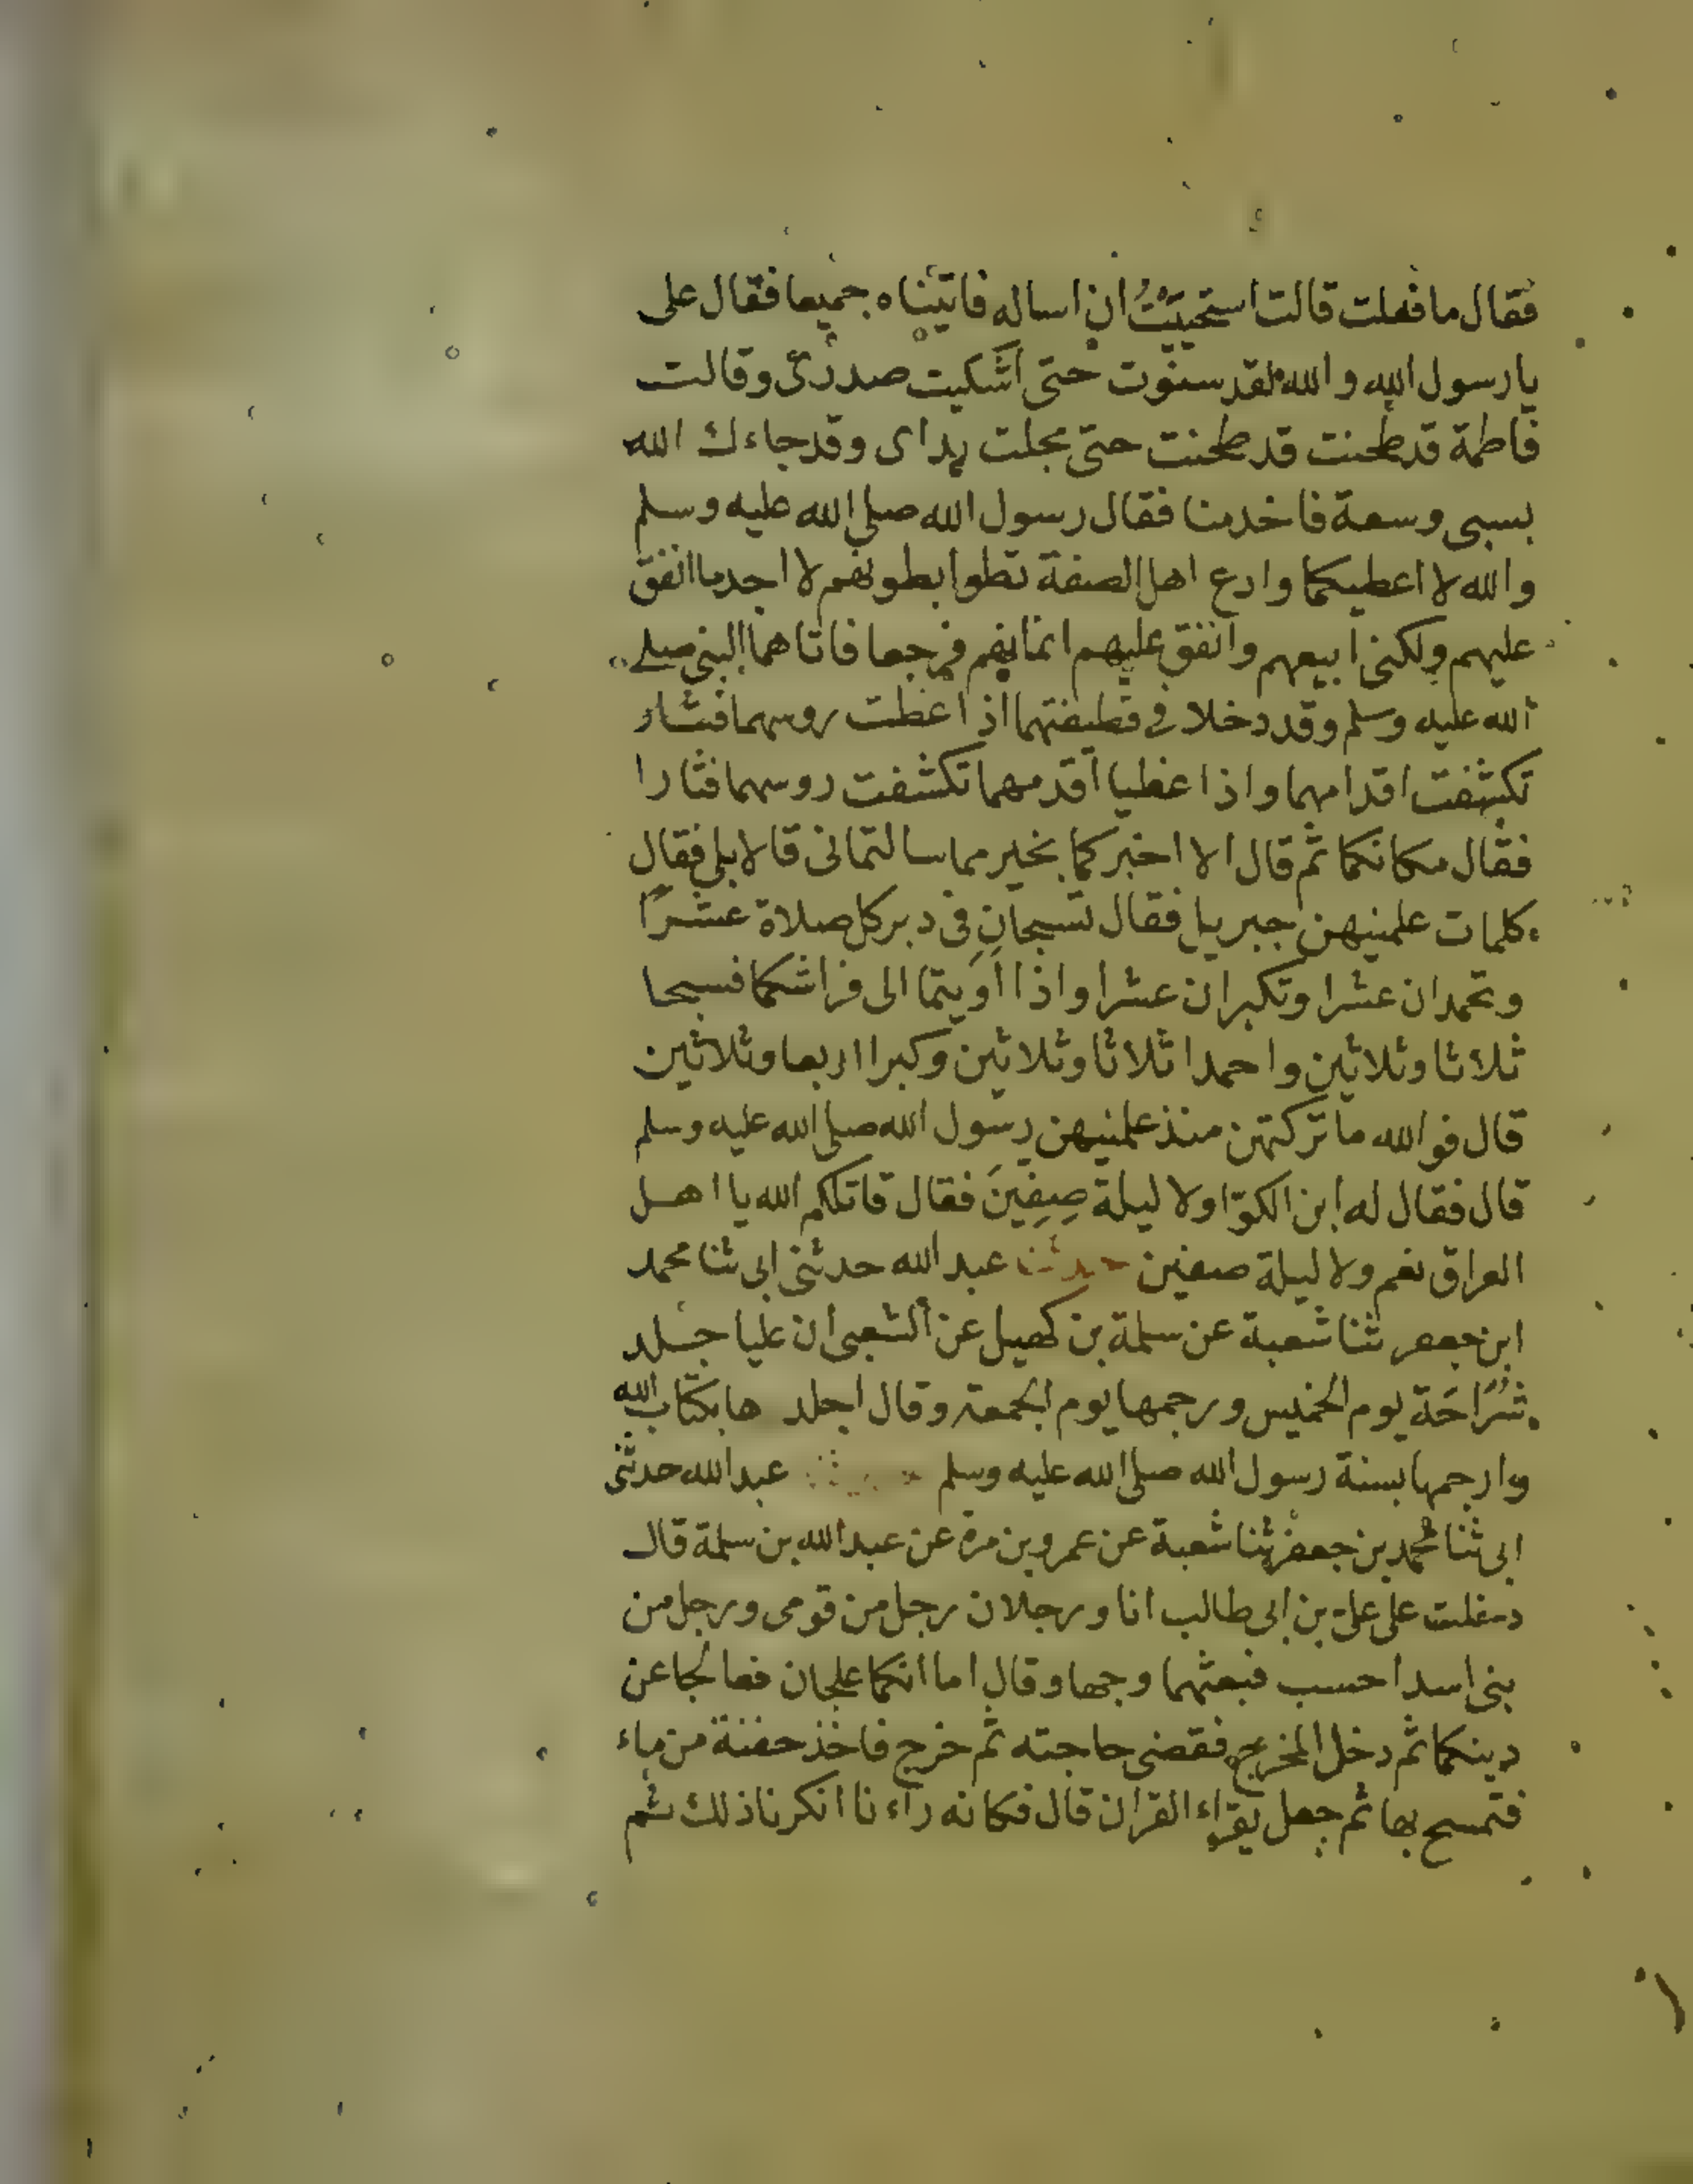 فقال ما فعلت قالت استحييت ان اساله فاتيناه جميعا فقال على
يا رسول الله والله لقد سنوت حتى اشتكيت صدرى وقالت
فاطمة قد طحنت قد طحنت حتى مجلت يداى وقد جاءك الله
بسبى وسعة فاخدمنا فقال رسول الله صلى الله عليه وسلم
والله لا اعطيكما وادع اهل الصفة تطوا بطونهم لا اجد ما انفق
عليهم ولكنى ابيعهم وانفق عليهم اثمانهم فرجعا فاتاهما النبى صلى
الله عليه وسلم وقد دخلا فى قطيفتهما اذا غطت روسهما فثار
تكشفت اقدامهما واذا غطيا اقدمهما تكشفت روسهما فثارا
فقال مكانكما ثم قال الا اخبركما بخير مما سالتمانى قالا بلى فقال
كلمات علمنيهن جبريل فقال تسبحان فى دبر كل صلاة عشرًا
وتحمدان عشرا وتكبران عشرا واذا اويتما الى فراشكما فسبحا
ثلاثا وثلاثين واحمدا ثلاثا وثلاثين وكبرا اربعا وثلاثين
قال فوالله ما تركتهن منذ علمنيهن رسول الله صلى الله عليه وسلم
قال فقال له ابن الكوّا ولا ليلة صِفِينَ فقال قاتلكم الله يا اهل
العراق نعم ولا ليلة صفين حدثنا عبد الله حدثنى ابى ثنا محمد
ابن جعفر ثنا شعبة عن سلمة بن كهيل عن الشعبى ان عليا جلد
شُرَاحَة يوم الخميس ورجمها يوم الجمعة وقال اجلدها بكتاب الله
وارجمها بسنة رسول الله صلى الله عليه وسلم حدثنا عبد الله حدثنى
ابى ثنا محمد بن جعفر ثنا شعبة عن عمرو بن مرة عن عبد الله بن سلمة قال
دخلت على على بن ابى طالب انا ورجلان رجل من قومى ورجل من
بنى اسد احسب فبعثهما وجها وقال اما انكما علجان فعالجا عن
دينكما ثم دخل المخرج فقضى حاجته ثم خرج فاخذ حفنة من ماء
فتمسح بها ثم جعل يقراء القران قال فكانه راءنا انكرنا ذلك ثم